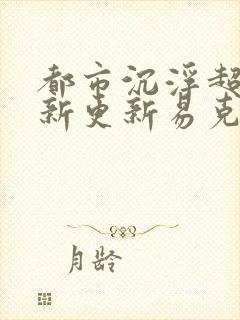 都市沉浮超
新更新易克
月龄